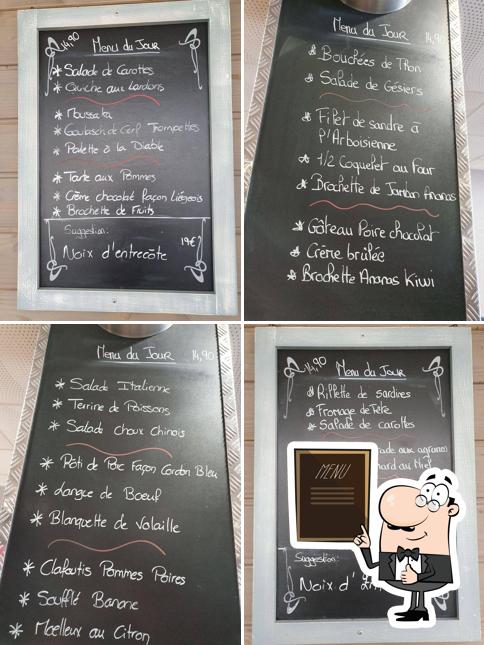 14,90
Menu du Jour
* Salade de Carottes
* Quiche aux Lardons
* Moussaka
* Goulasch de Cerf Trompettes
* Palette à la Diable
* Tarte aux Pommes
* Crème chocolat façon Liégeois
* Brochette de Fruits
Suggestion:
19€
Noix d'entrecôte
Menu du Jour 14,90
* Bouchées de Thon
* Salade de Gésiers
* Filet de sandre à
l'Arboisienne
* 1/2 Coquelet au four
* Brochette de Jambon Ananas
* Gâteau Poire chocolat
* Crème brûlée
* Brochette Ananas Kiwi
Menu du Jour 14,90
* Salade Italienne
* Terrine de Poissons
* Salade choux Chinois
* Rôti de Porc façon Cordon Bleu
* Langue de Boeuf
* Blanquette de Volaille
* Clafoutis Pommes Poires
* Soufflé Banane
* Moelleux au Citron
14,90
Menu du Jour
* Rillette de sardines
* Fromage de Tête
* Salade de carottes
aux agrumes
MENU
Suggestion:
Noix d'